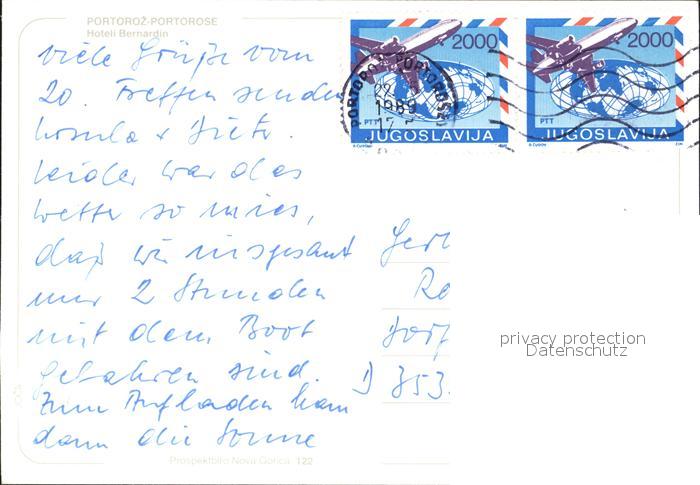 PORTOROŽ-PORTOROSE
Hoteli Bernardin
viele Grüße vom
20. Treffen senden
Ursula &
Leider war das
Wetter so mies,
daß wir insgesamt
nur 2 Stunden
mit dem Boot
gefahren sind.
Zum Aufladen kam
dann die Sonne
2000
PTT
JUGOSLAVIJA
2000
PTT
JUGOSLAVIJA
PORTOROŽ PORTOROSE
1989
D
privacy protection
Datenschutz
Prospektbiro Nova Gorica 122